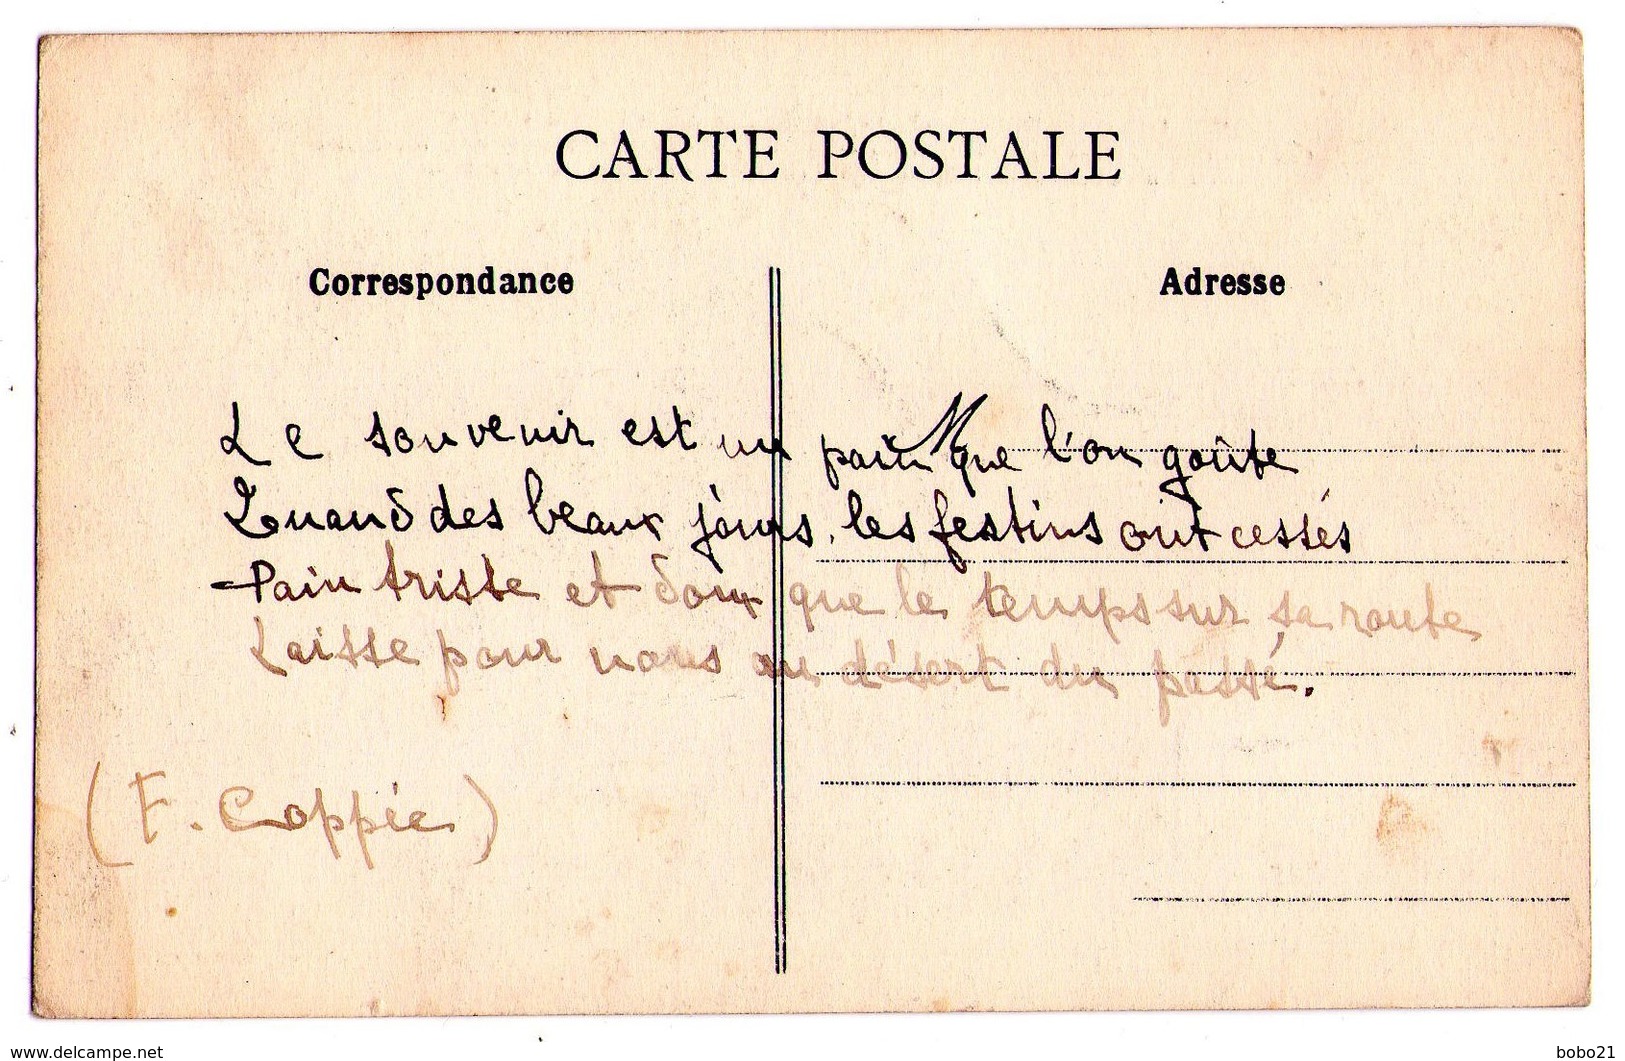 CARTE POSTALE
Correspondance
Adresse
M
Le souvenir est un pain que l'on goûte
Quand des beaux jours, les festins ont cessés
Pain triste et doux que le temps sur sa route
Laisse pour nous au désert du passé.
(F. Coppée)
www.delcampe.net
bobo21